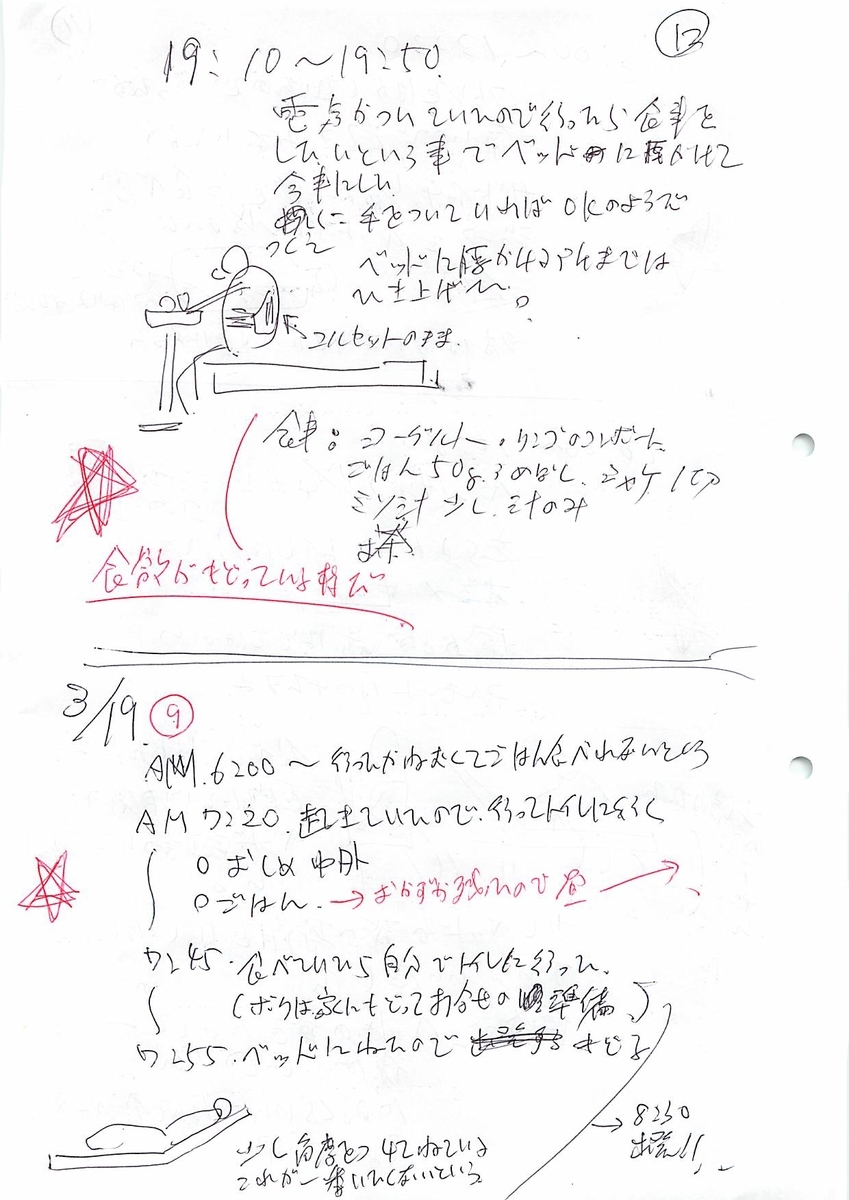 ⑫
19:10〜19:50
電気がついていたので行ったら食事を
したいという事でベッドに腰かけて
食事にした
手をついていればOKのようで
つくえ
ベッドに腰かける所までは
コルセットのまま.
食事:ヨーグルト・リンゴのコンポート
ごはん50g.うめぼし.シャケ1切
ミソ汁少し.汁のみ
お茶
食欲がもどっている様だ
3/19 ⑨
AM.6:00〜行ったがねむくてごはん食べれないという
AM 7:20.起きていたので.行ってトイレに行く
○おしめ 中外
○ごはん.→おかずが残ったので昼→
7:45.食べていたら自分でトイレに行った.
(ボクは家にもどってお合せの準備.)
7:55.ベッドにねたので もどる
→8:30
出発!!
少し角度をつけてねている
これが一番いたくないという